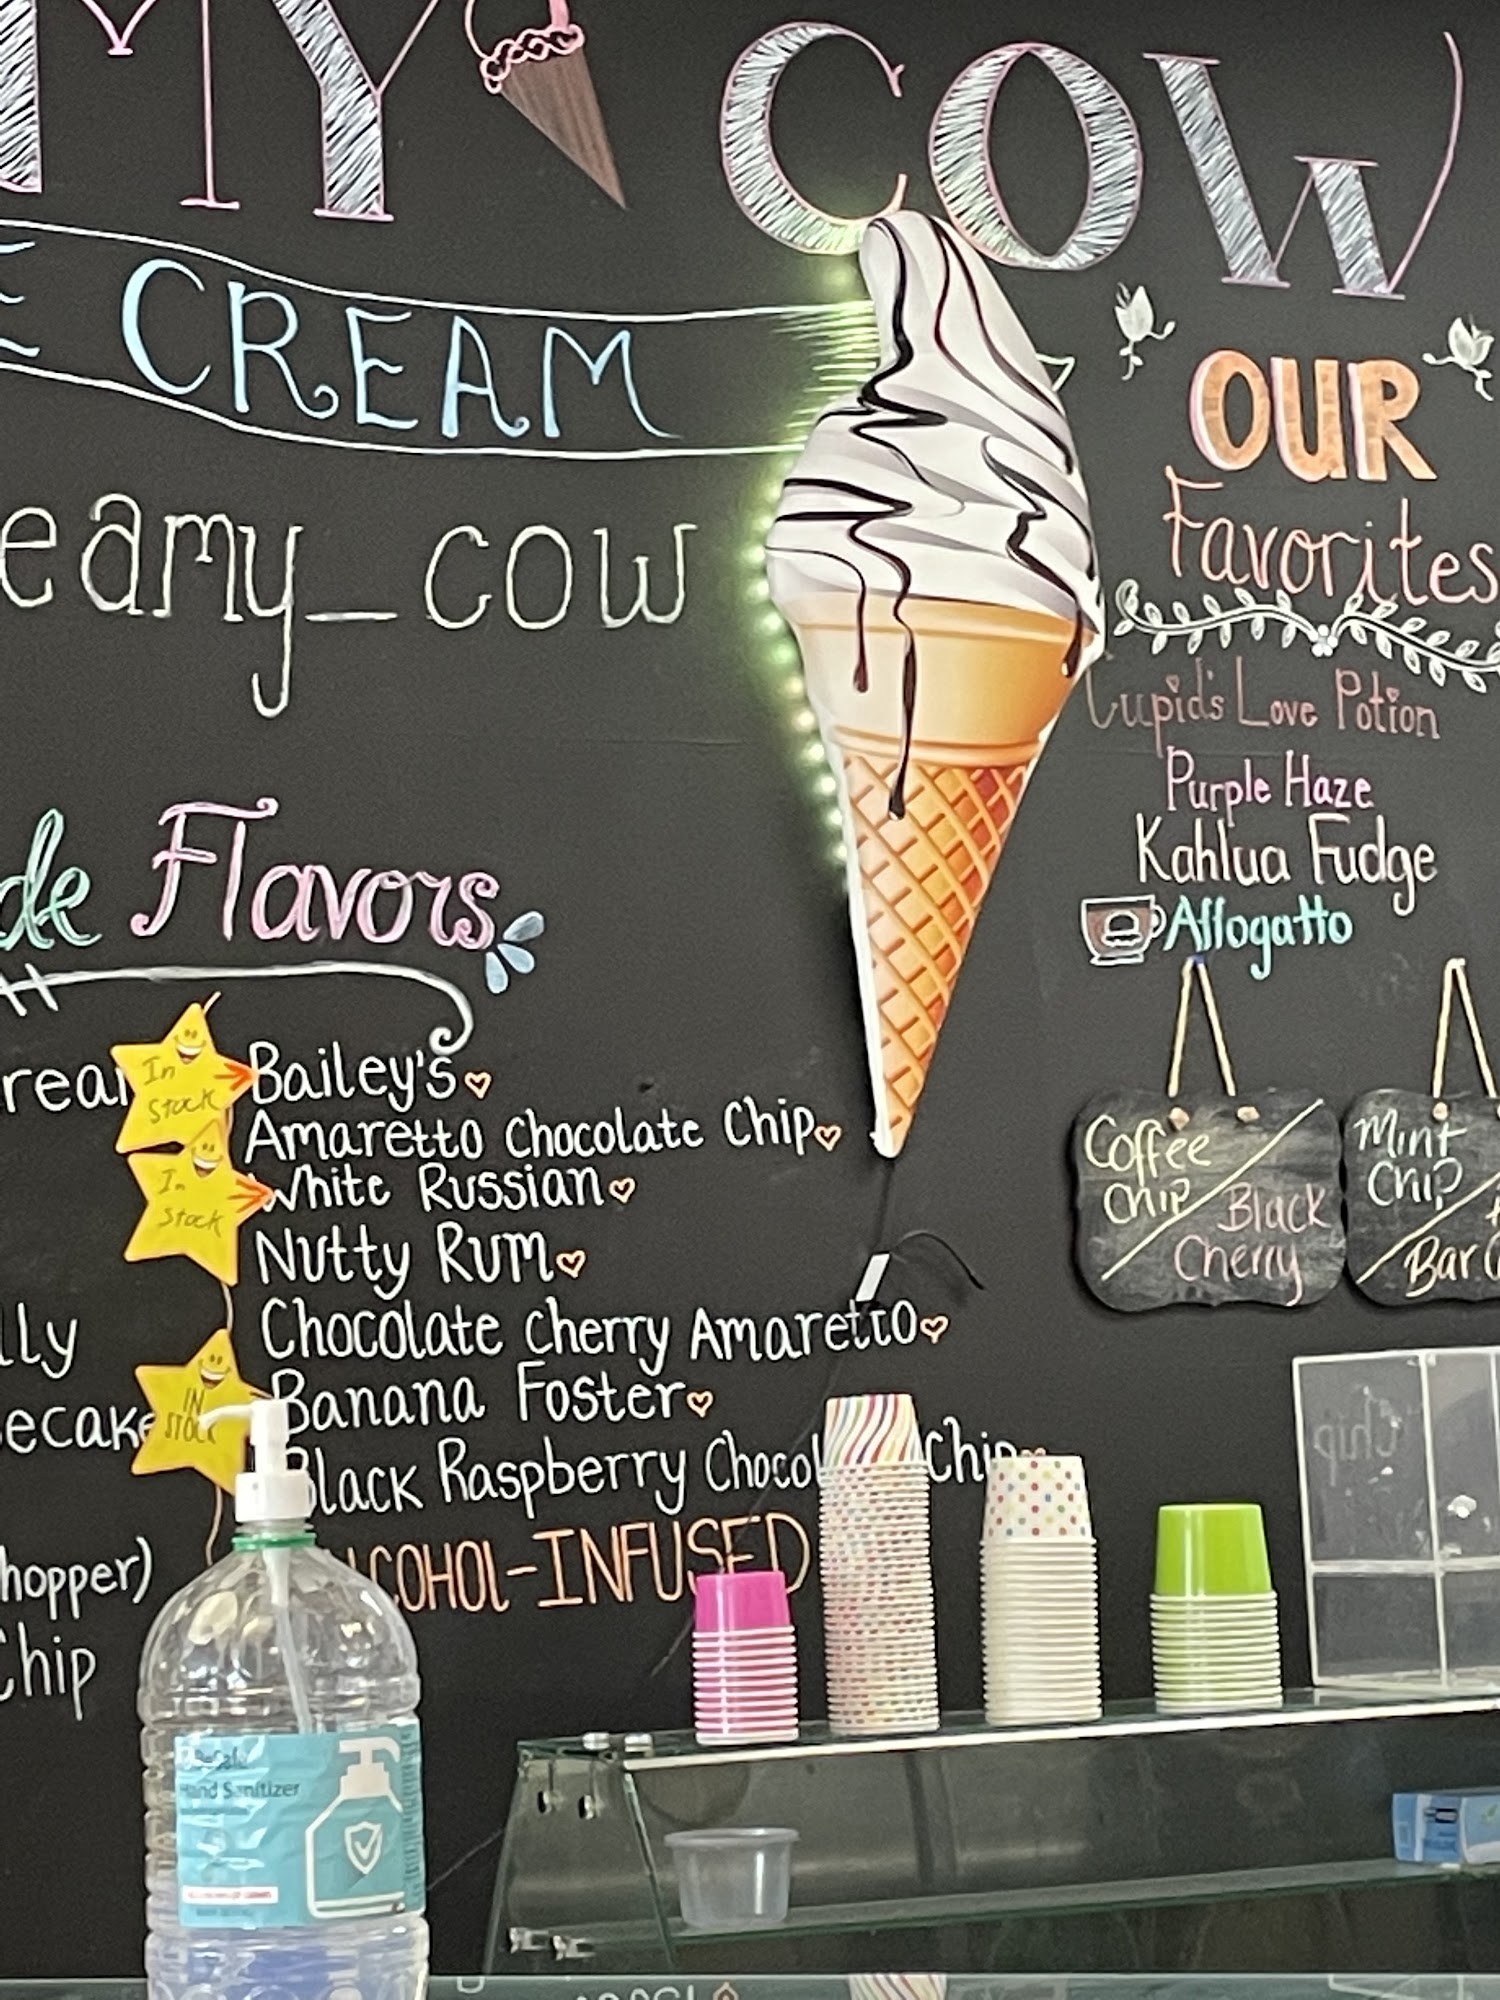 MY COW
E CREAM
eamy_cow
OUR
Favorites
Cupid's Love Potion
Purple Haze
Kahlua Fudge
Affogatto
de Flavors
In
Stock
Bailey's
Amaretto Chocolate Chip
In
Stock
White Russian
Nutty Rum
Chocolate Cherry Amaretto
IN
STOCK
Banana Foster
Black Raspberry Chocol Chip
COHOL-INFUSED
lly
ecake
hopper)
Chip
Coffee
Chip
Black
Cherry
Mint
Chip
Bar
Hand Sanitizer